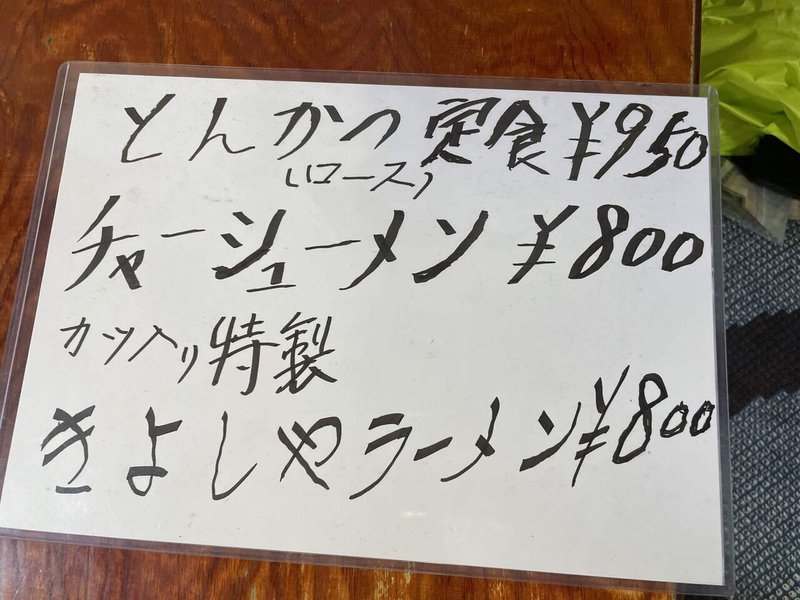 とんかつ定食¥950
(ロース)
チャーシューメン ¥800
カツ入リ特製
きよしやラーメン¥800